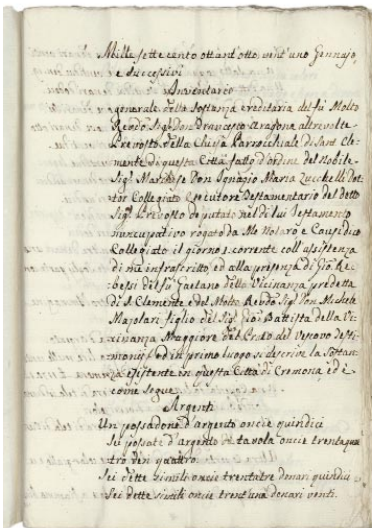 Mille sette cento ottant'otto, vent'uno Gennajo,
e successivi
Inventario
generale della Sostanza ereditaria del fù Molto
Revdo Sigr Don Francesco Aragona altrevolte
Prevosto della Chiesa Parrocchiale di Sant Cle-
mente di questa Città fatto d'ordine del Nobile
Sigr Marchese Don Ignazio Maria Zucchelli Dot-
tor Collegiato Esecutore Testamentario del detto
Sigr Prevosto deputato nel di lui Testamento
nuncupativo rogato da Me Notaro e Causidico
Collegiato il giorno corrente coll'assistenza
di me infrascritto, ed alla presenza di Gio: Re-
bessi del fù Gaetano della Vicinanza predetta
di S. Clemente e del Molto Revdo Sigr Don Michele
Majolari figlio del Sigr Gio: Battista della Vi-
cinanza Maggiore del Prato del Vescovo Testi-
monij. Ed in primo luogo si descrive la Sostan-
za esistente in questa Città di Cremona, ed è
come segue
Argenti
Un possadone d'argento oncie quindici
Sei possate d'argento di tavola oncie trentaqua
tro den quattro
Sei dette simili oncie trentatre denari quindici
Sei dette simili oncie trent'una denari venti.